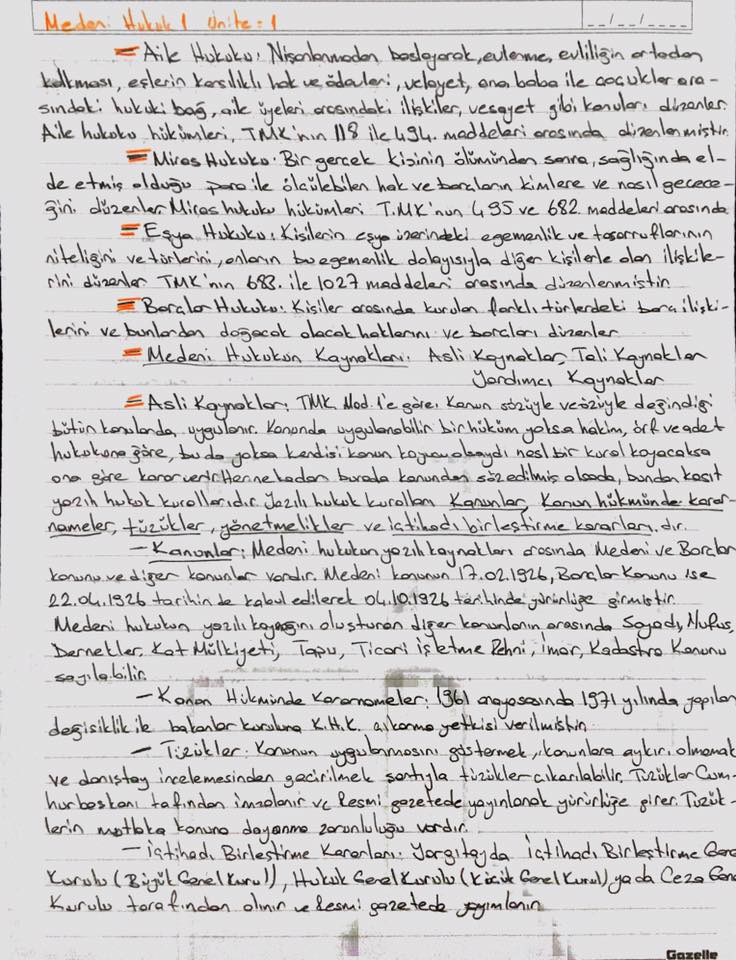 Medeni Hukuk 1 Ünite = 1
_ _ / _ _ / _ _
= Aile Hukuku: Nişanlanmadan başlayarak, evlenme, evliliğin ortadan
kalkması, eşlerin karşılıklı hak ve ödevleri, velayet, ana baba ile çocuklar ara-
sındaki hukuki bağ, aile üyeleri arasındaki ilişkiler, vesayet gibi konuları düzenler
Aile hukuku hükümleri, TMK'nın 118 ile 494. maddeleri arasında düzenlenmiştir.
= Miras Hukuku: Bir gerçek kişinin ölümünden sonra, sağlığında el-
de etmiş olduğu para ile ölçülebilen hak ve borçların kimlere ve nasıl geçece-
ğini düzenler. Miras hukuku hükümleri T.MK'nun 495 ve 682. maddeleri arasında
= Eşya Hukuku: Kişilerin eşya üzerindeki egemenlik ve tasarruflarının
niteliğini ve türlerini, onların bu egemenlik dolayısıyla diğer kişilerle olan ilişkile-
rini düzenler TMK'nin 683. ile 1027 maddeleri arasında düzenlenmiştir
= Borçlar Hukuku: Kişiler arasında kurulan farklı türlerdeki borç ilişki-
lerini ve bunlardan doğacak olacak haklarını ve borçları düzenler
= Medeni Hukukun Kaynakları: Asli Kaynaklar, Tali Kaynaklar
Yardımcı Kaynaklar
= Asli Kaynaklar: TMK Mad. 1'e göre; Kanun sözüyle ve özüyle değindiği
bütün konularda uygulanır. Kanunda uygulanabilir bir hüküm yoksa hakim, örf ve adet
hukukuna göre, bu da yoksa kendisi kanun koyucu olsaydı nasıl bir kural koyacaksa
ona göre karar verir. Her ne kadar burada kanundan söz edilmiş olsada, bundan kasıt
yazılı hukuk kurallarıdır. Yazılı hukuk kuralları Kanunlar, Kanun hükmünde karar-
nameler, tüzükler, yönetmelikler ve içtihadı birleştirme kararları.dır.
- Kanunlar: Medeni hukukun yazılı kaynakları arasında Medeni ve Borçlar
kanunu ve diğer kanunlar vardır. Medeni kanunun 17.02.1926, Borçlar Kanunu ise
22.04.1926 tarihinde kabul edilerek 04.10.1926 tarihinde yürürlüğe girmiştir
Medeni hukukun yazılı kaynağını oluşturan diğer kanunların arasında Soyadı, Nüfus,
Dernekler, Kat Mülkiyeti, Tapu, Ticari İşletme Rehni, İmar, Kadastro Kanunu
sayılabilir.
- Kanun Hükmünde Kararnameler: 1961 anayasasında 1971 yılında yapılan
değişiklik ile bakanlar kuruluna K.H.K. çıkarma yetkisi verilmiştir.
- Tüzükler: Kanunun uygulanmasını göstermek, kanunlara aykırı olmamak
ve danıştay incelemesinden geçirilmek şartıyla tüzükler çıkarılabilir. Tüzükler Cum-
hurbaşkanı tafından imzalanır ve Resmi gazetede yayınlanak yürürlüğe girer. Tüzük-
lerin mutlaka kanuna dayanma zorunluluğu vardır.
- İçtihadı Birleştirme Kararları: Yargıtayda İçtihadı Birleştirme Gene
Kurulu (Büyük Genel Kurul), Hukuk Genel Kurulu (Küçük Genel Kurul) ya da Ceza Gene
Kurulu tarafından alınır ve Resmi gazetede yayımlanır
Gazelle